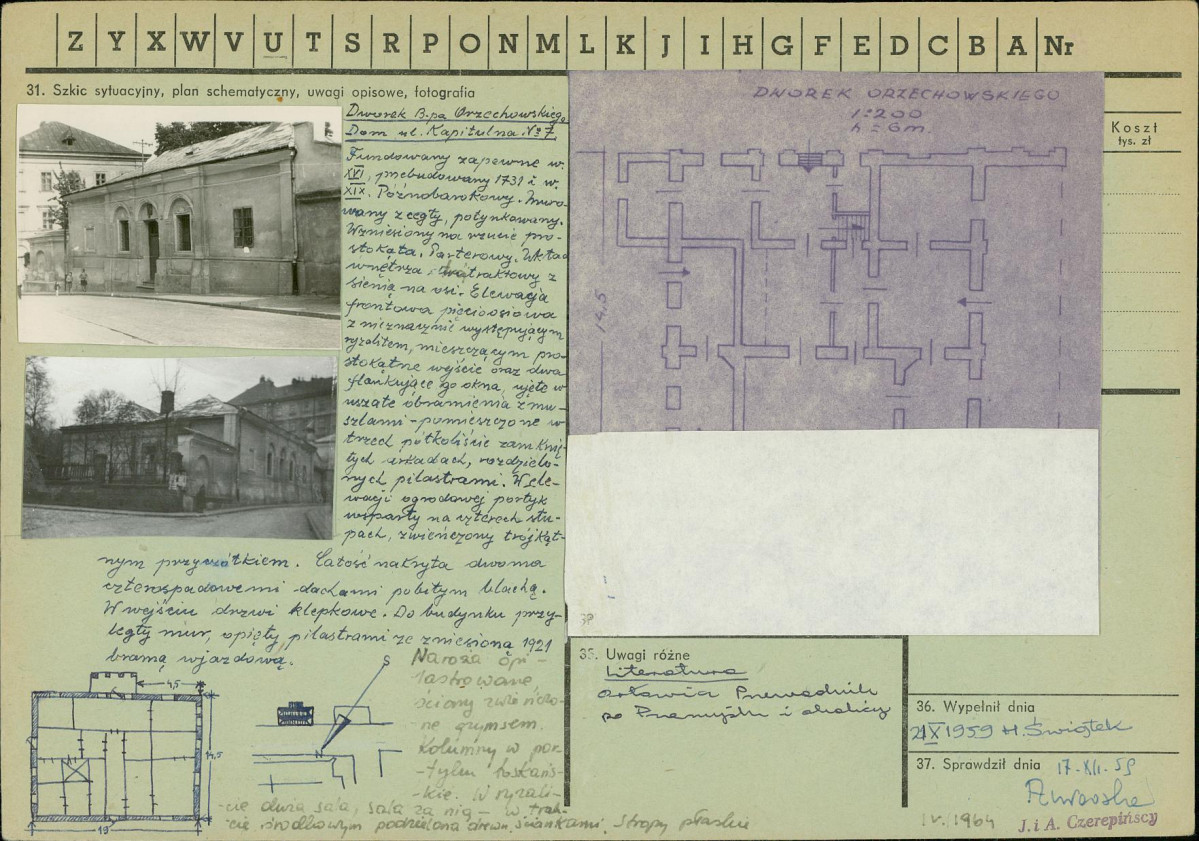 Z Y X W V U T S R P O N M L K J I H G F E D C B A Nr
31. Szkic sytuacyjny, plan schematyczny, uwagi opisowe, fotografia
Dworek B-pa Orzechowskiego
Dom ul. Kapitulna № 7
Fundowany zapewne w.
XVI, przebudowany 1731 i w.
XIX. Późnobarokowy. Muro-
wany z cegły, potynkowany.
Wzniesiony na rzucie pro-
stokąta. Parterowy. Układ
wnętrza trójtraktowy z
sienią na osi. Elewacja
frontowa pięcioosiowa
z nieznacznie występującym
ryzalitem, mieszczącym pro-
stokątne wejście oraz dwa
flankujące go okna, ujęte w
uszate obramienia z mu-
szlami - pomieszczone w
trzech półkoliście zamknię-
tych arkadach, rozdzielo-
nych pilastrami. W ele-
wacji ogrodowej portyk
wsparty na czterech słu-
pach, zwieńczony trójkąt-
nym przyczółkiem. Całość nakryta dwoma
czterospadowemi dachami pobitym blachą.
W wejściu drzwi klepkowe. Do budynku przy-
legły mur, opięty pilastrami ze zniesioną 1921
bramą wjazdową.
Naroża opi-
lastrowane,
ściany zwieńczo-
ne gzymsem.
Kolumny w por-
-tyku toskańs-
-kie. W ryzali-
-cie duża sala, sala za nią - w trak-
cie środkowym podzielona drewn. ściankami. Stropy płaskie
4,5
14,5
19
S
N
DWOREK ORZECHOWSKIEGO
1:200
h = 6m.
14,5
Koszt
tys. zł
35. Uwagi różne
Literatura
Orłowicz Przewodnik
po Przemyślu i okolicy
36. Wypełnił dnia
21 X 1959 H. Świątek
37. Sprawdził dnia 17-XII-59
IV. 1964
J. i A. Czerepińscy